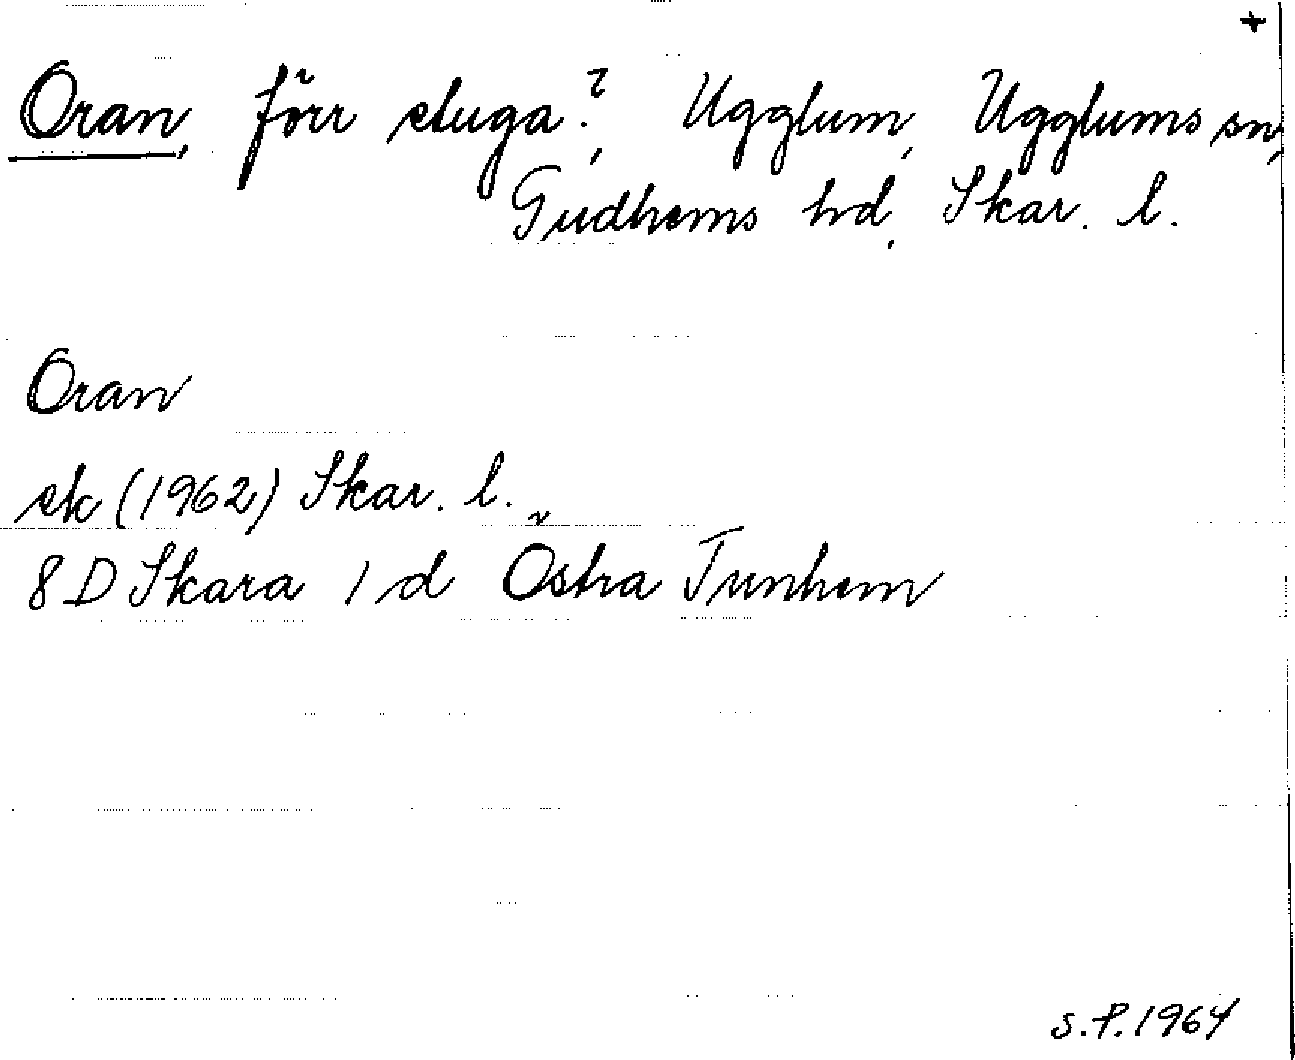 +
Oran, förr stuga?, Ugglum, Ugglums sn,
Gudhems hd, Skar. l.
Oran
ek (1962) Skar. l.
8 D Skara 1 d Östra Tunhem
S.P. 1964